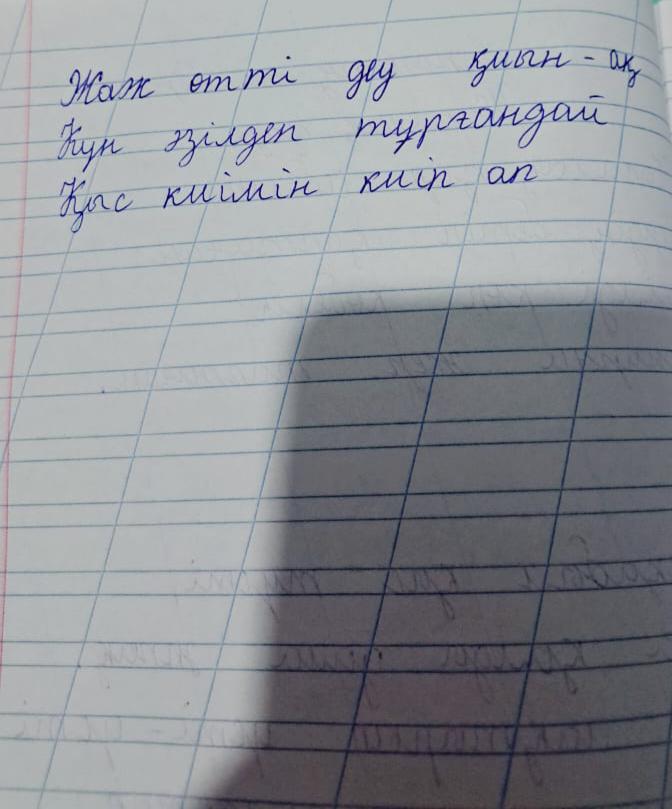 Жаж өтті деу қиын-ақ
Күн әзілден тұрғандай
Қыс киімін киіп ап